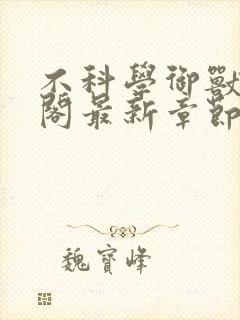 不科學御獸
閣最新章節
魏寶峰